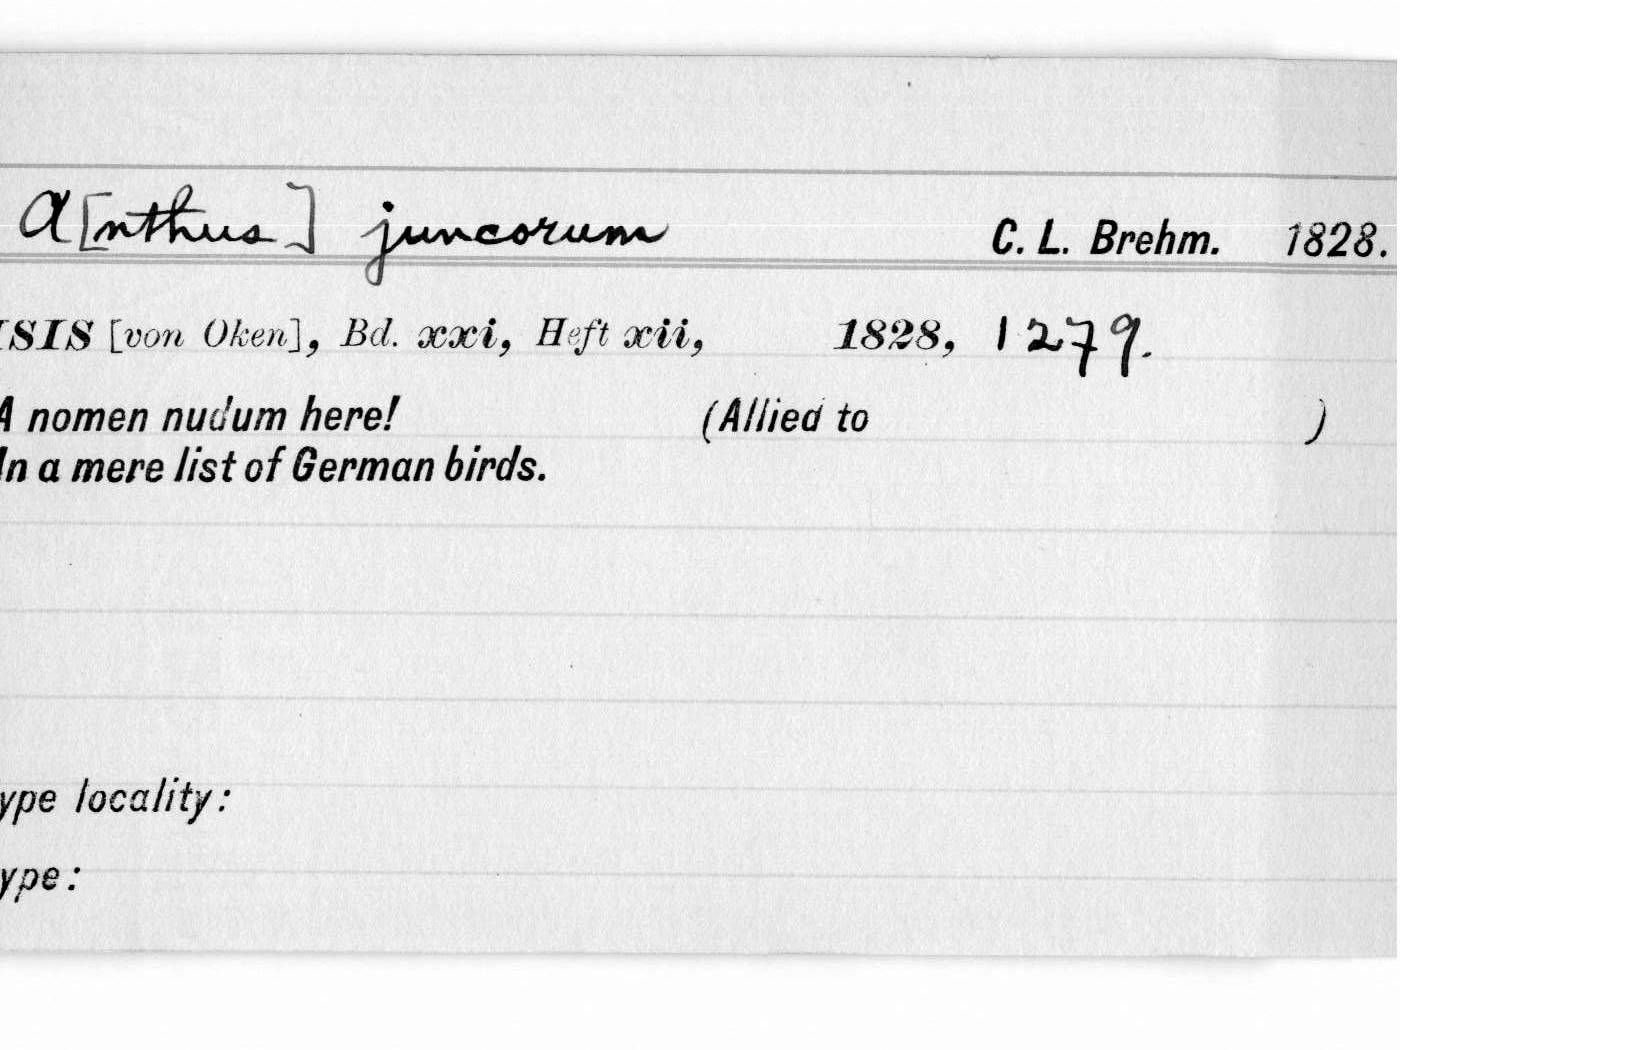 A[nthus] juncorum C. L. Brehm. 1828.
ISIS [von Oken], Bd. xxi, Heft xii, 1828, 1279.
A nomen nudum here! (Allied to )
In a mere list of German birds.
ype locality:
ype: